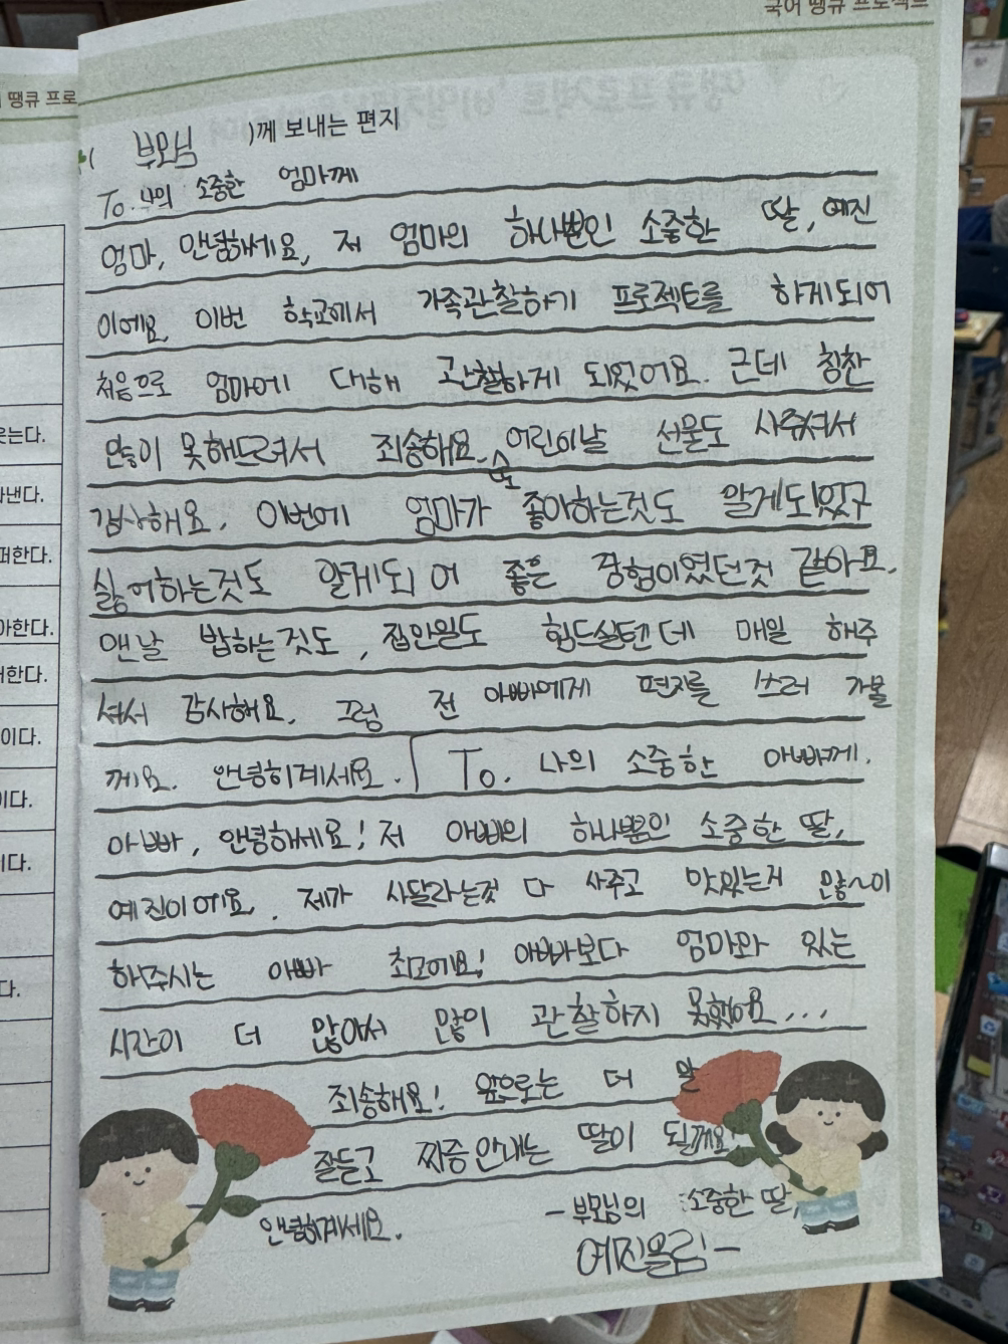 국어 땡큐 프로젝트
땡큐 프로
( 부모님 )께 보내는 편지
To. 나의 소중한 엄마께
엄마, 안녕해세요, 저 엄마의 하나뿐인 소중한 딸, 예진
이에요. 이번 학교에서 가족관찰하기 프로젝트를 하게되어
처음으로 엄마에 대해 관찰하게 되었어요. 근데 칭찬
많이 못해드려서 죄송해요. 또 어린이날 선물도 사주셔서
감사해요. 이번에 엄마가 좋아하는것도 알게되었구
싫어하는것도 알게되어 좋은 경험이였던것 같아요.
맨날 밥하는것도, 집안일도 힘드실텐데 매일 해주
셔서 감사해요. 그럼 전 아빠에게 편지를 쓰러 가볼
께요. 안녕히계세요. To. 나의 소중한 아빠께.
아빠, 안녕해세요! 저 아빠의 하나뿐인 소중한 딸,
예진이에요. 제가 사달라는것 다 사주고 맛있는거 많~이
해주시는 아빠 최고에요! 아빠보다 엄마와 있는
시간이 더 많아서 많이 관찰하지 못했어요...
죄송해요! 앞으로는 더 말
잘듣고 찌증안내는 딸이 될께요!
안녕히계세요.
- 부모님의 소중한 딸,
예진올림 -
웃는다.
낸다.
퍼한다.
아한다.
해한다.
이다.
이다.
이다.
다.